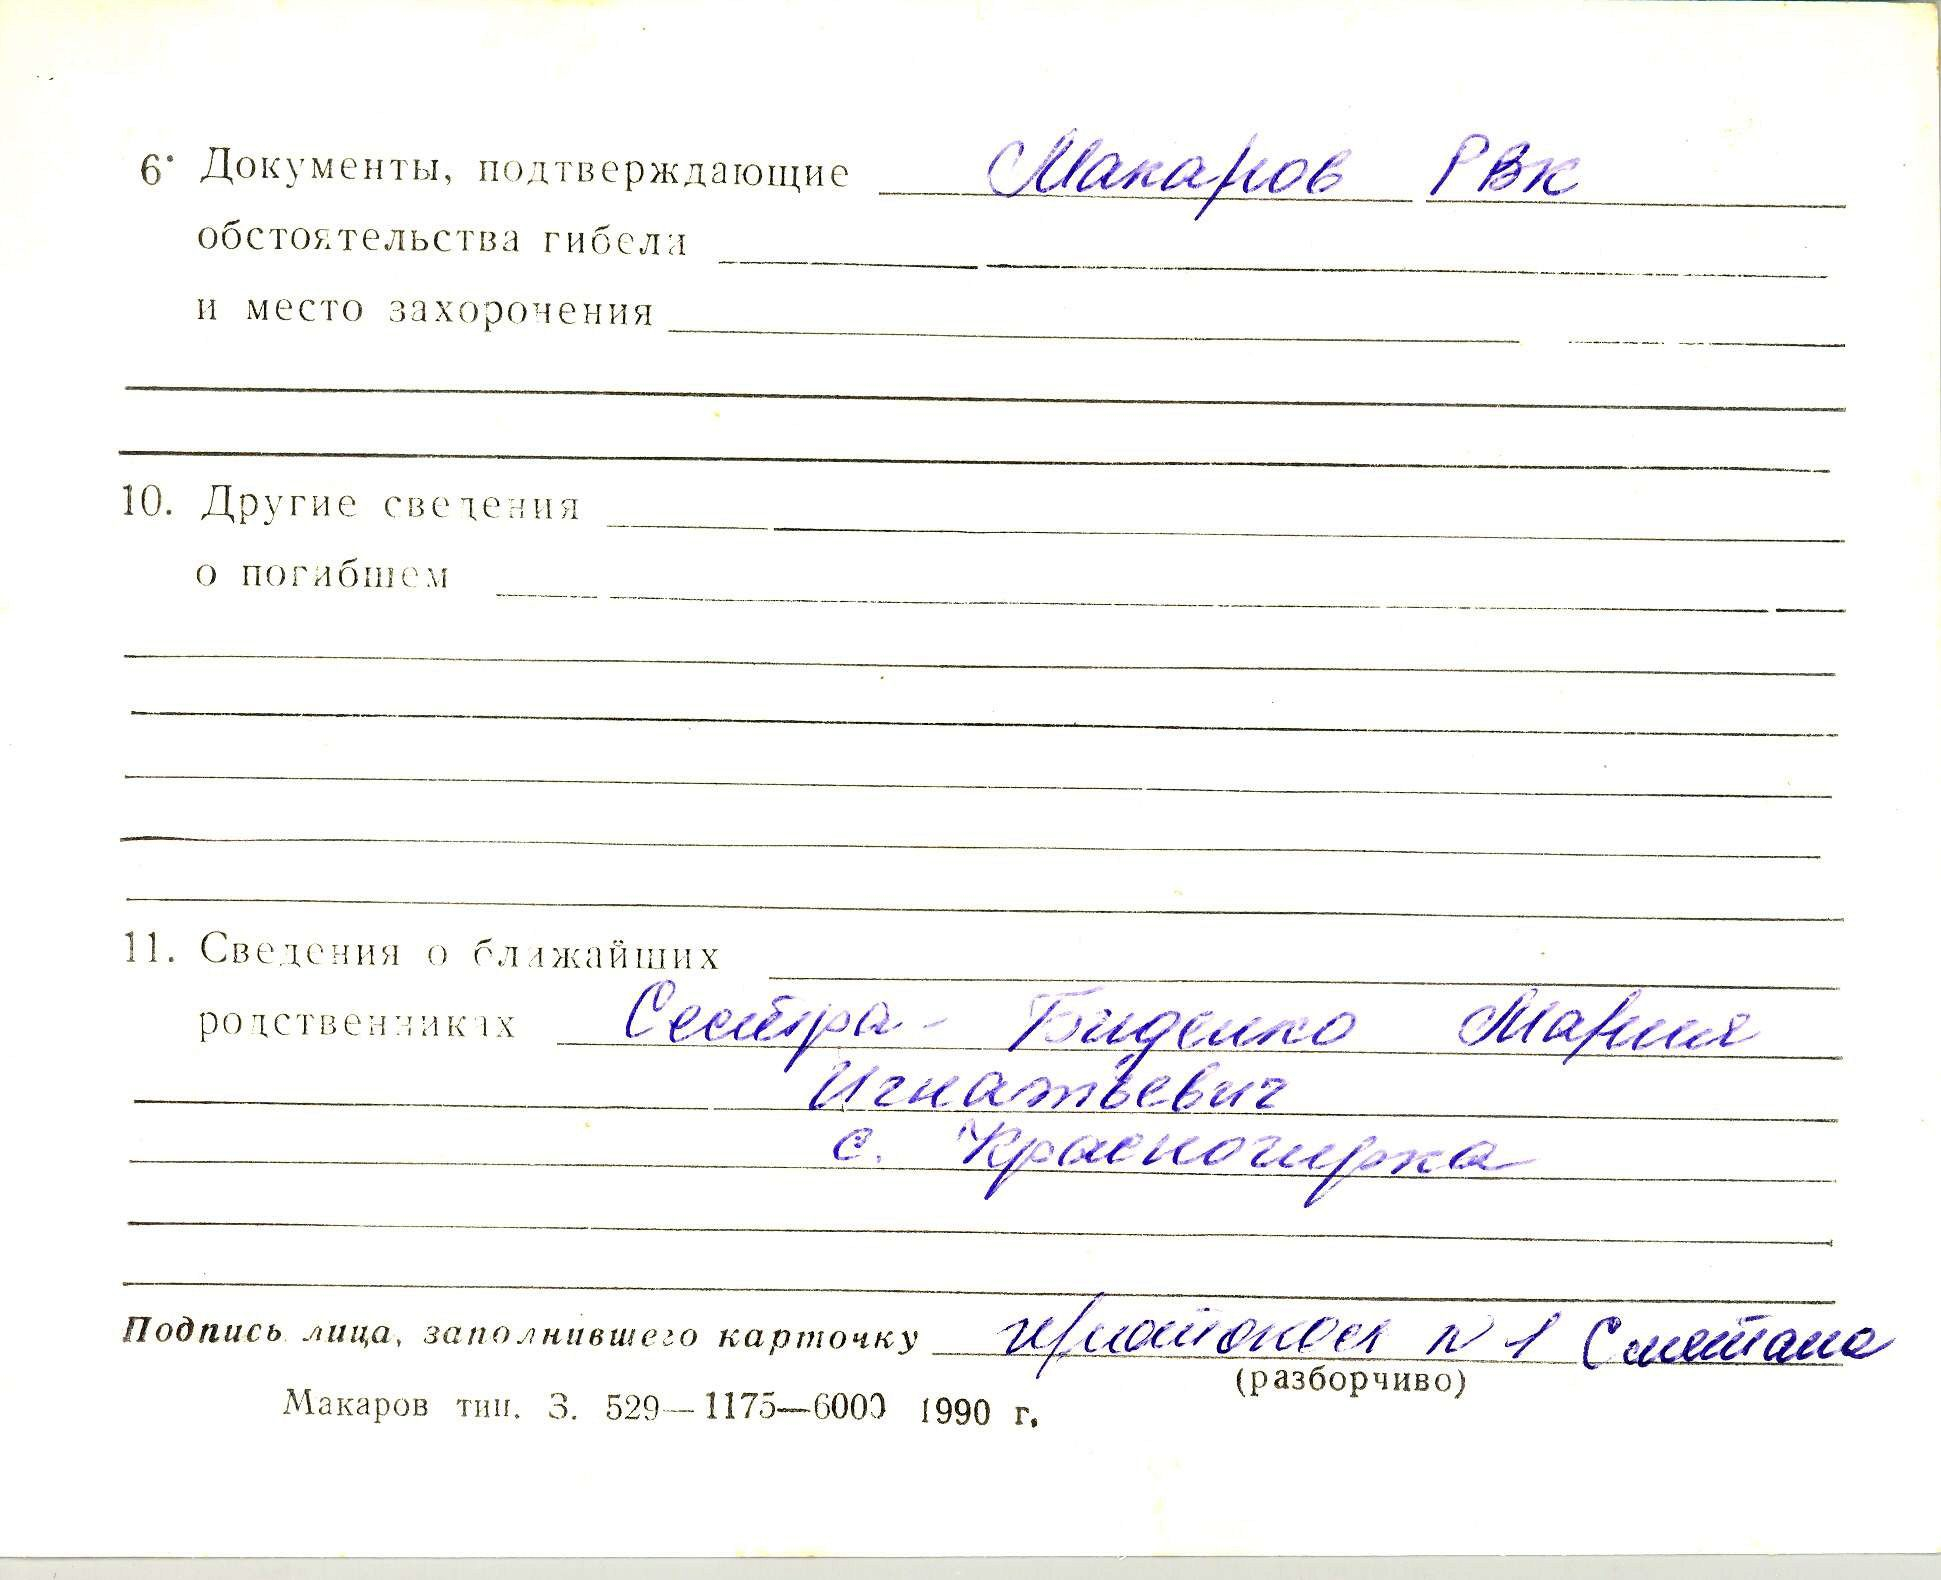 6. Документы, подтверждающие Макаров РВК
обстоятельства гибели
и место захоронения
10. Другие сведения
о погибшем
11. Сведения о ближайших
родственниках Сестра - Биденко Мария
Игнатьевич
с. Красногирка
Подпись лица, заполнившего карточку N 1 Сметана
(разборчиво)
Макаров тип. З. 529—1175—6000 1990 г.